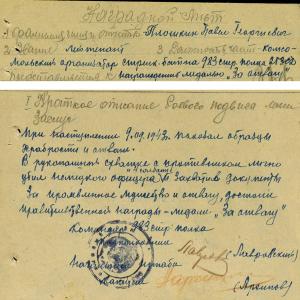 Наградной Лист
1. Фамилия имя и отчество Плошкин Павел Георгиевич
2. Звание лейтенант 3. Должность часть - комсо-
мольский организатор стрелк. бат-на 983 стр. полка
представляется к награждению медалью "За отвагу"
I Краткое описание боевого подвига
Заслуг
При наступлении 9.09.1943г. показал образцы
храбрости и отваги.
В рукопашной схватке с противником лично
убил немецкого офицера, захватил документы
За проявленное мужество и отвагу, достоин
правительственной награды - медали "За отвагу"
Командир 983 стр. полка
подполковник (Лавровский)
Начальник штаба
капитан (Архипов)